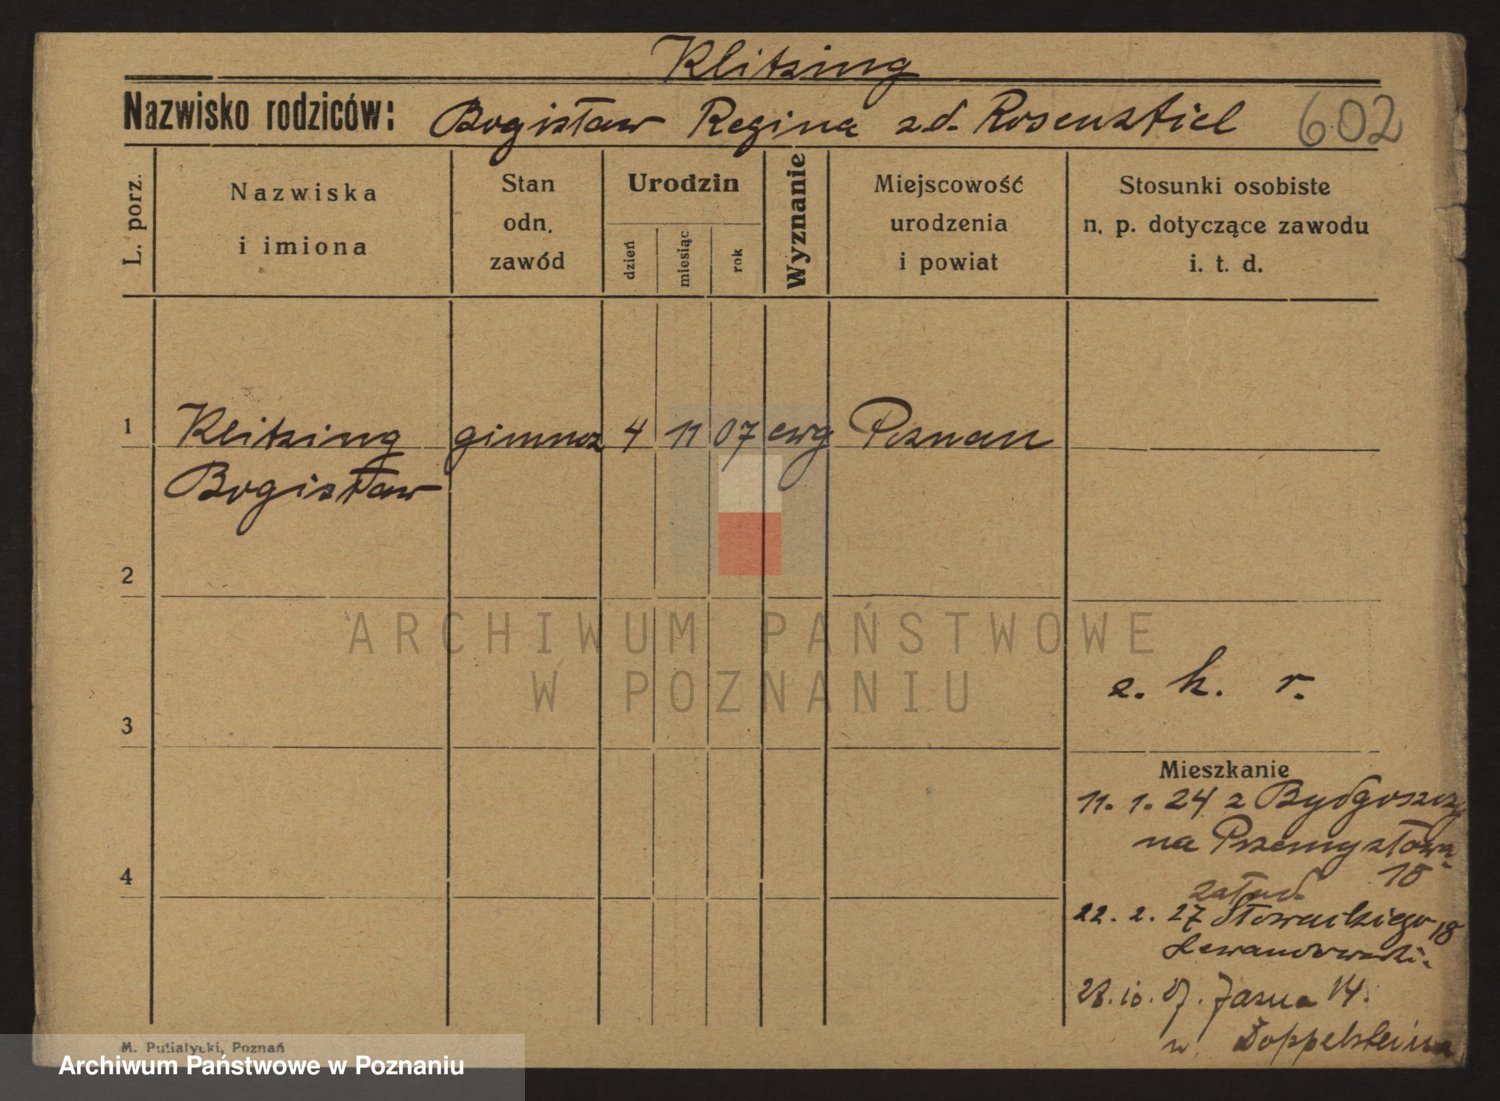 Klitzing
Nazwisko rodziców: Bogisław Regina z d. Rosenstiel 602
L. porz.
Nazwiska i imiona
Stan odn. zawód
Urodzin
dzień miesiąc rok
Wyznanie
Miejscowość urodzenia i powiat
Stosunki osobiste n. p. dotyczące zawodu i. t. d.
1 Klitzing gimnaz 4 11 07 ewg Poznan
Bogisław
2
ARCHIWUM PAŃSTWOWE
W POZNANIU
3
k. r.
Mieszkanie
11. 1. 24 z Bydgoszczy
na Przemysłowa
15
4
22. 2. 27 Słowackiego 18
Lewandowski
28. 10. Jasna 14.
Doppelsteina
M. Putiatycki, Poznań
Archiwum Państwowe w Poznaniu